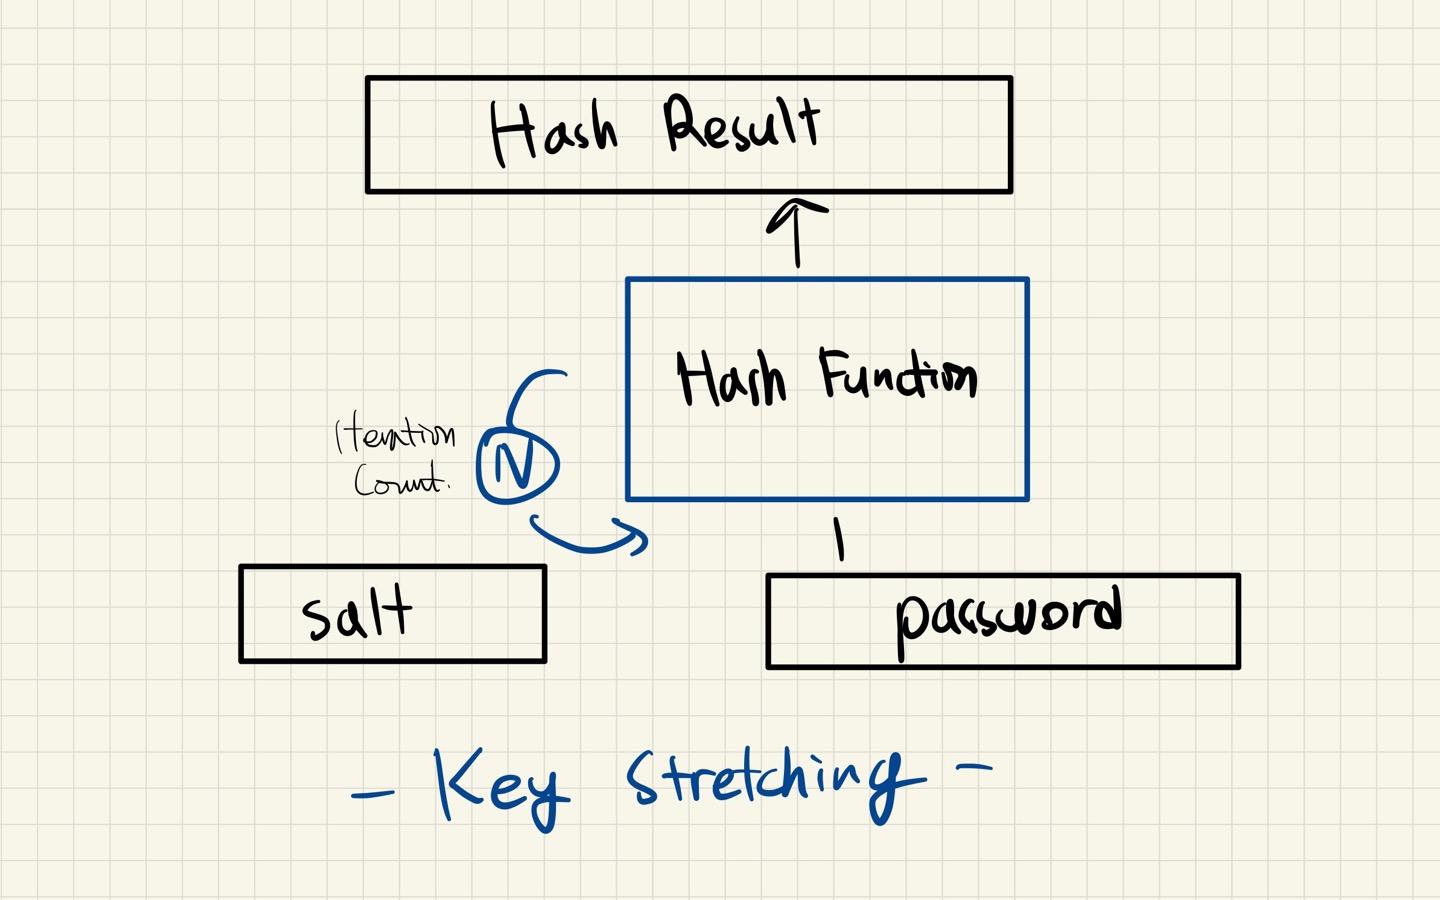 Hash Result
Hash Function
Iteration
Count.
N
salt
password
- Key Stretching -